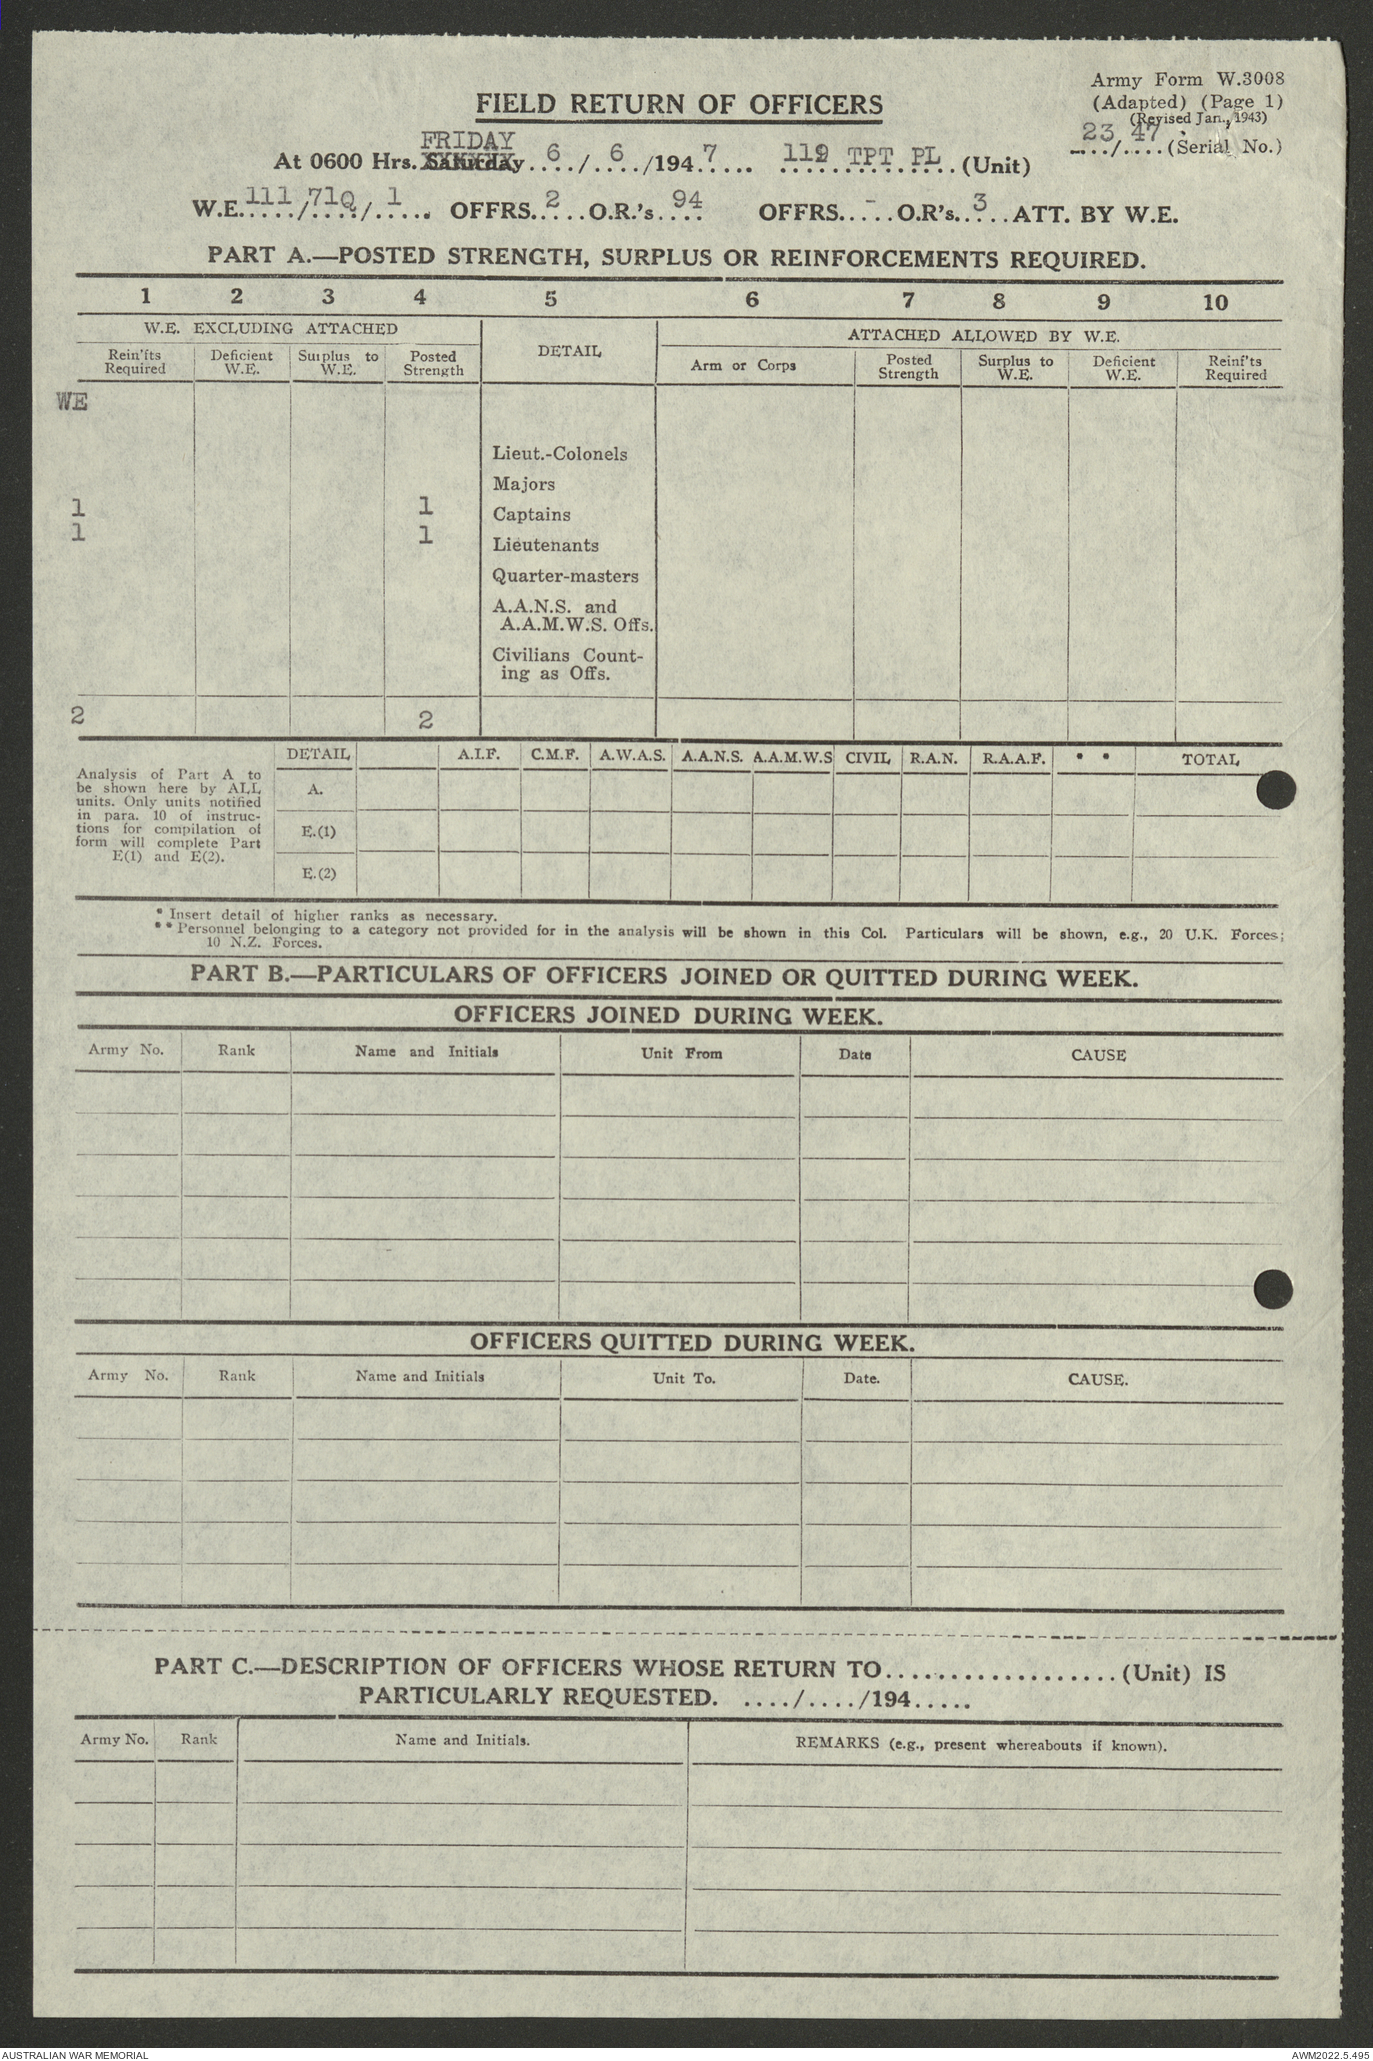 Army Form W.3008
FIELD RETURN OF OFFICERS (Adapted) (Page 1)
(Revised Jan., 1943)
FRIDAY 23 47
At 0600 Hrs. Saturday 6 / 6 /1947 TPT PL (Unit) ..../.... (Serial No.)
W.E. 111 / 71Q / 1 OFFRS. 2 O.R.'s 94 OFFRS. - O.R's. 3 ATT. BY W.E.
PART A.—POSTED STRENGTH, SURPLUS OR REINFORCEMENTS REQUIRED.
1 2 3 4 5 6 7 8 9 10
W.E. EXCLUDING ATTACHED DETAIL ATTACHED ALLOWED BY W.E.
Rein'fts Required Deficient W.E. Surplus to W.E. Posted Strength Arm or Corps Posted Strength Surplus to W.E. Deficient W.E. Reinf'ts Required
WE
Lieut.-Colonels
Majors
1 1 Captains
1 1 Lieutenants
Quarter-masters
A.A.N.S. and
A.A.M.W.S. Offs.
Civilians Count-
ing as Offs.
2 2
DETAIL A.I.F. C.M.F. A.W.A.S. A.A.N.S. A.A.M.W.S CIVIL R.A.N. R.A.A.F. * * TOTAL
Analysis of Part A to
be shown here by ALL
units. Only units notified
in para. 10 of instruc-
tions for compilation of
form will complete Part
E(1) and E(2).
A.
E.(1)
E.(2)
* Insert detail of higher ranks as necessary.
** Personnel belonging to a category not provided for in the analysis will be shown in this Col. Particulars will be shown, e.g., 20 U.K. Forces;
10 N.Z. Forces.
PART B.—PARTICULARS OF OFFICERS JOINED OR QUITTED DURING WEEK.
OFFICERS JOINED DURING WEEK.
Army No. Rank Name and Initials Unit From Date CAUSE
OFFICERS QUITTED DURING WEEK.
Army No. Rank Name and Initials Unit To. Date. CAUSE.
PART C.—DESCRIPTION OF OFFICERS WHOSE RETURN TO.................. (Unit) IS
PARTICULARLY REQUESTED. ..../..../194.....
Army No. Rank Name and Initials. REMARKS (e.g., present whereabouts if known).
AUSTRALIAN WAR MEMORIAL AWM2022.5.495